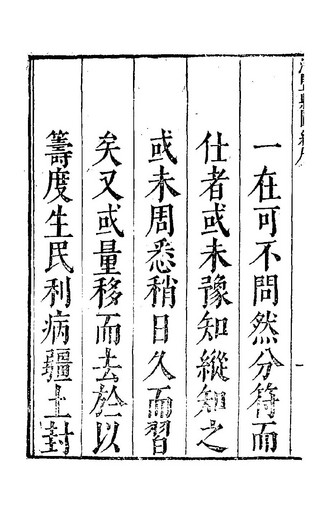 一在可不問然分符而
仕者或未豫知縱知之
或未周悉稍日久而習
矣又或量移而去於以
籌度生民利病疆土封